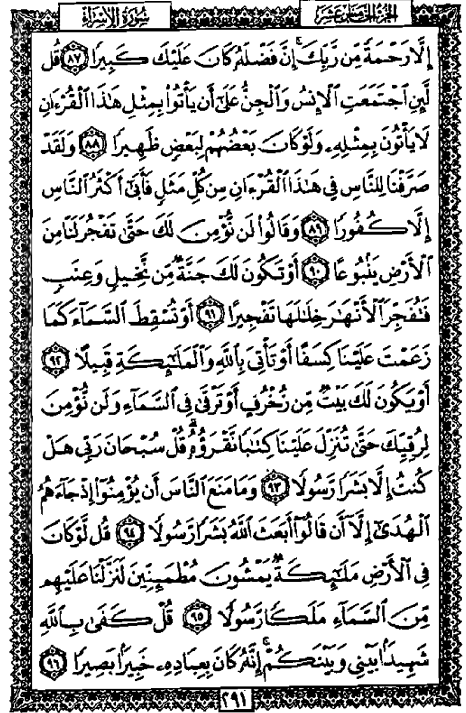 الجزء الخامس عشر
سُورَةُ الإِسْرَاءِ
إِلَّا رَحْمَةً مِّن رَّبِّكَ ۚ إِنَّ فَضْلَهُۥ كَانَ عَلَيْكَ كَبِيرًا ٨٧ قُل
لَّئِنِ ٱجْتَمَعَتِ ٱلْإِنسُ وَٱلْجِنُّ عَلَىٰٓ أَن يَأْتُوا۟ بِمِثْلِ هَٰذَا ٱلْقُرْءَانِ
لَا يَأْتُونَ بِمِثْلِهِۦ وَلَوْ كَانَ بَعْضُهُمْ لِبَعْضٍ ظَهِيرًا ٨٨ وَلَقَدْ
صَرَّفْنَا لِلنَّاسِ فِى هَٰذَا ٱلْقُرْءَانِ مِن كُلِّ مَثَلٍ فَأَبَىٰٓ أَكْثَرُ ٱلنَّاسِ
إِلَّا كُفُورًا ٨٩ وَقَالُوا۟ لَن نُّؤْمِنَ لَكَ حَتَّىٰ تَفْجُرَ لَنَا مِنَ
ٱلْأَرْضِ يَنۢبُوعًا ٩٠ أَوْ تَكُونَ لَكَ جَنَّةٌ مِّن نَّخِيلٍ وَعِنَبٍ
فَتُفَجِّرَ ٱلْأَنْهَٰرَ خِلَٰلَهَا تَفْجِيرًا ٩١ أَوْ تُسْقِطَ ٱلسَّمَآءَ كَمَا
زَعَمْتَ عَلَيْنَا كِسَفًا أَوْ تَأْتِىَ بِٱللَّهِ وَٱلْمَلَٰٓئِكَةِ قَبِيلًا ٩٢
أَوْ يَكُونَ لَكَ بَيْتٌ مِّن زُخْرُفٍ أَوْ تَرْقَىٰ فِى ٱلسَّمَآءِ وَلَن نُّؤْمِنَ
لِرُقِيِّكَ حَتَّىٰ تُنَزِّلَ عَلَيْنَا كِتَٰبًا نَّقْرَؤُهُۥ ۗ قُلْ سُبْحَانَ رَبِّى هَلْ
كُنتُ إِلَّا بَشَرًا رَّسُولًا ٩٣ وَمَا مَنَعَ ٱلنَّاسَ أَن يُؤْمِنُوٓا۟ إِذْ جَآءَهُمُ
ٱلْهُدَىٰٓ إِلَّآ أَن قَالُوٓا۟ أَبَعَثَ ٱللَّهُ بَشَرًا رَّسُولًا ٩٤ قُل لَّوْ كَانَ
فِى ٱلْأَرْضِ مَلَٰٓئِكَةٌ يَمْشُونَ مُطْمَئِنِّينَ لَنَزَّلْنَا عَلَيْهِم
مِّنَ ٱلسَّمَآءِ مَلَكًا رَّسُولًا ٩٥ قُلْ كَفَىٰ بِٱللَّهِ
شَهِيدًۢا بَيْنِى وَبَيْنَكُمْ ۚ إِنَّهُۥ كَانَ بِعِبَادِهِۦ خَبِيرًۢا بَصِيرًا ٩٦
٢٩١